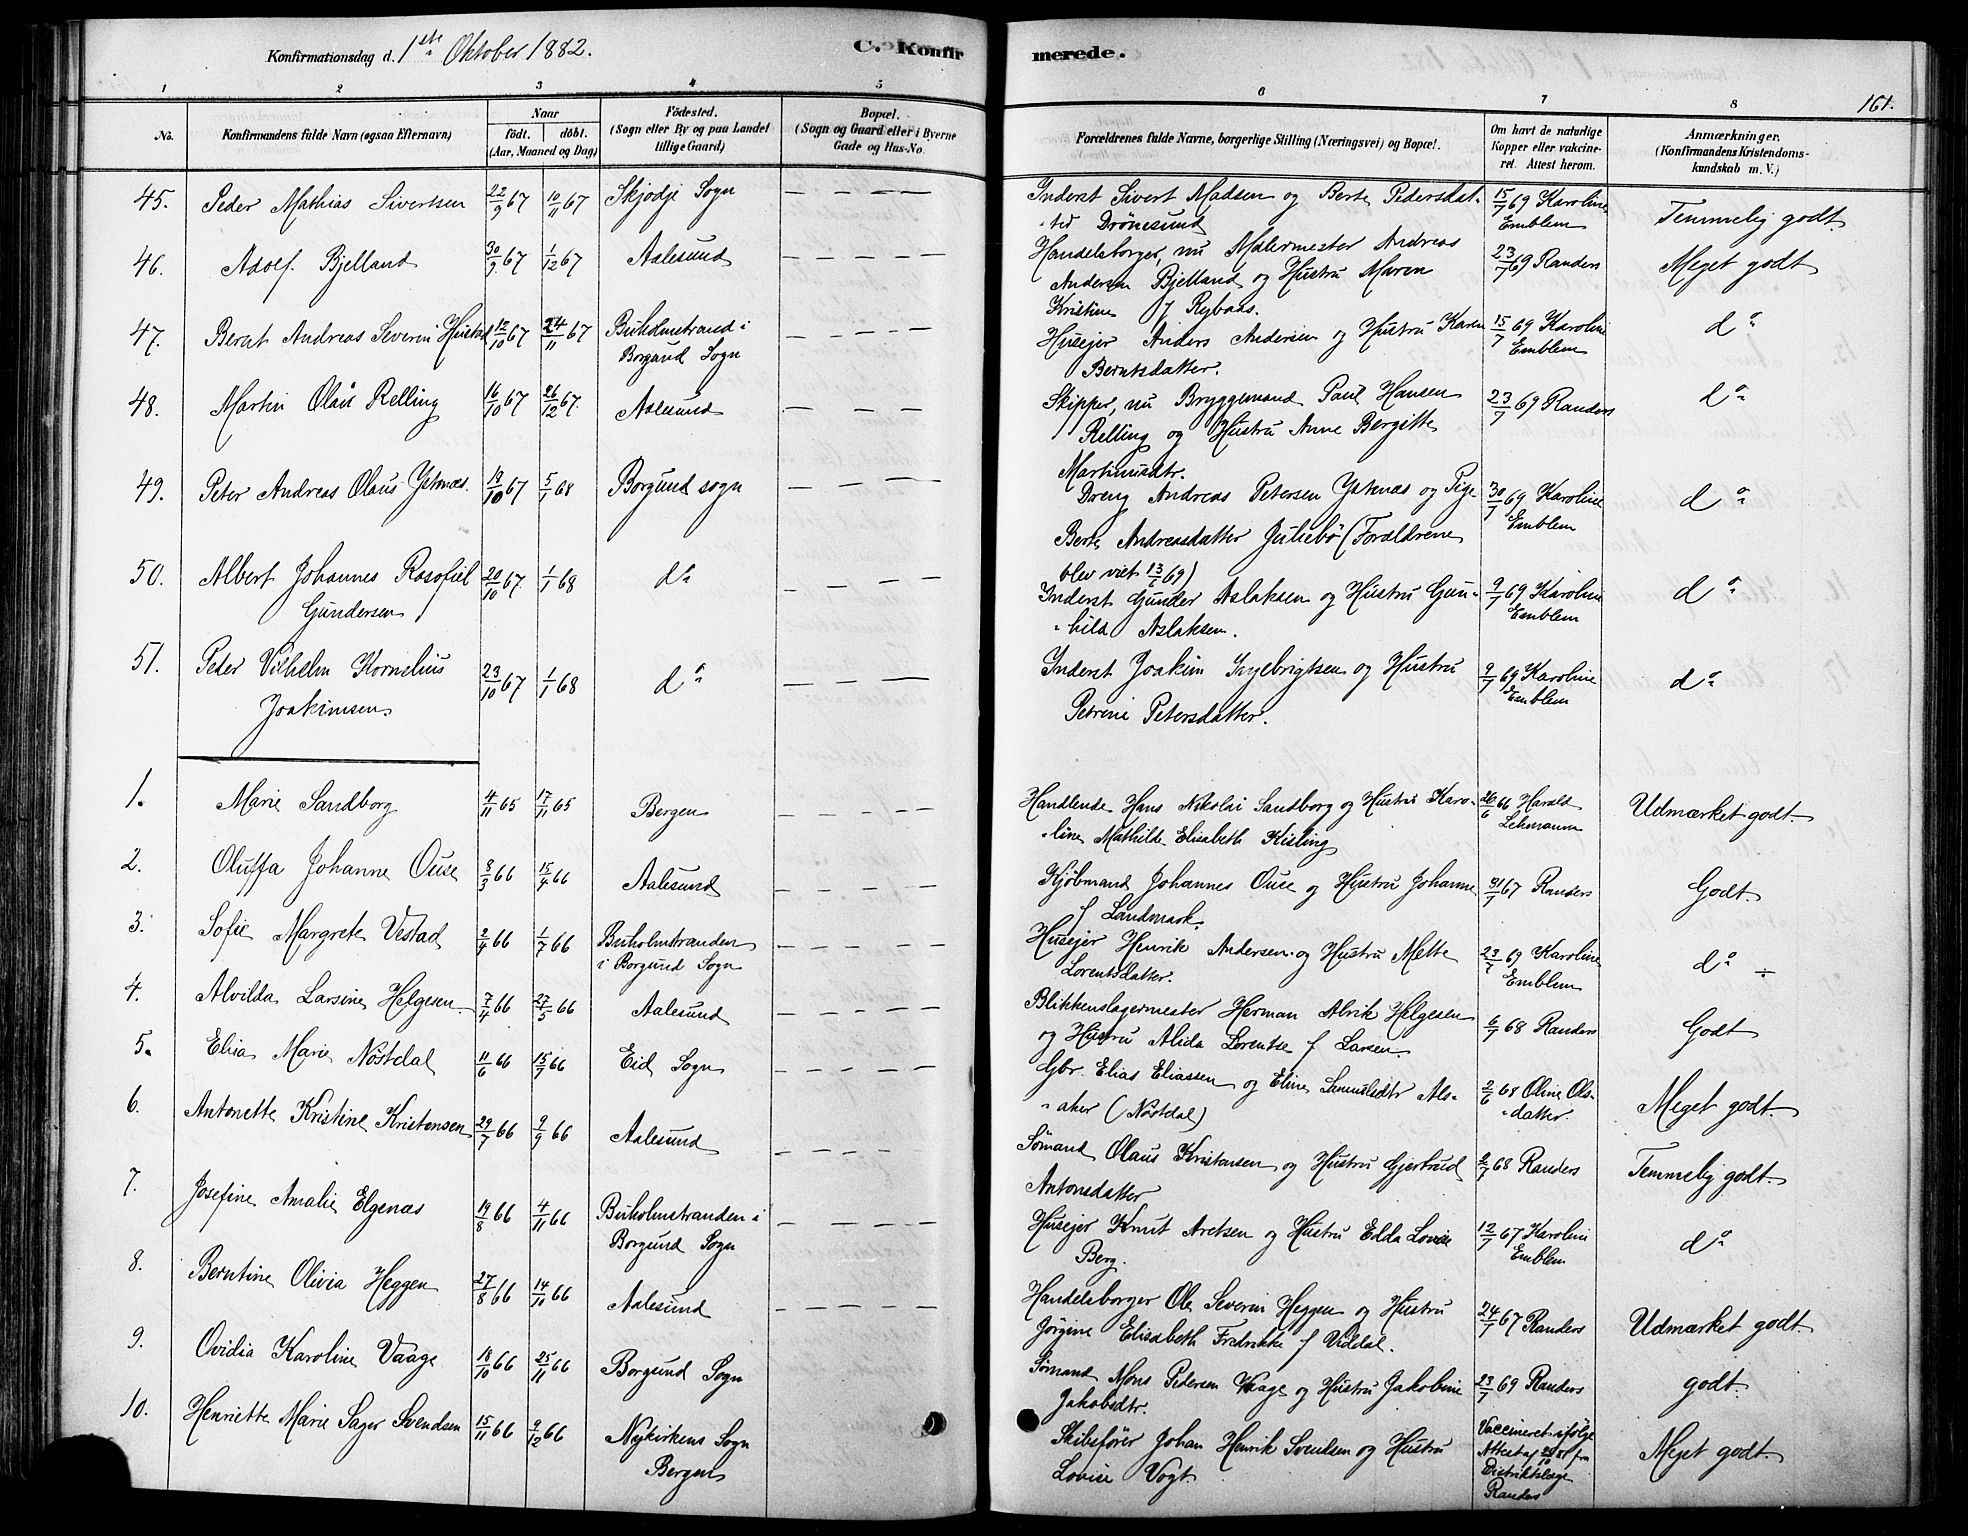 Konfirmationsdag d. 1ste Oktober 1882.
C. Konfirmerede.
161.
1 2 3 4 5 6 7 8
No.
Konfirmandens fulde Navn (ogsaa Efternavn)
Naar
födt. döbt.
(Aar, Maaned og Dag)
Födested.
(Sogn eller By og paa Landet
tillige Gaard)
Bopæl.
(Sogn og Gaard eller i Byerne
Gade og Hus-No.
Forældrenes fulde Navne, borgerlige Stilling (Næringsvei) og Bopæl.
Om havt de naturlige
Kopper eller vakcine-
ret. Attest herom.
Anmærkninger.
(Konfirmandens Kristendoms-
kundskab m. V.)
45. Peder Mathias Sivertsen 22/9 67 10/11 67 Skjodje Sogn — — — — Inderst Sivert Madsen og Berte Pedersdat- 15/7 69 Karoline Emblem Temmelig godt.
ter Drönesund
46. Adolf Bjelland 30/9 67 1/12 67 Aalesund — — — — Handelsborger, nu Malermester Andreas 23/7 69 Randers Meget godt
Andersen Bjelland og Hustru Maren
Kristine f Rybaas.
47. Bernt Andreas Severin Hustad 12/10 67 24/11 67 Buholmstrand i — — — — Husejer Anders Andersen og Hustru Karen 15/7 69 Karoline Emblem do
Borgund Sogn Berntsdatter.
48. Martin Olaus Relling 16/10 67 26/12 67. Aalesund — — — — Skipper, nu Bryggemand Paul Hansen 23/7 69 Randers do
Relling og Hustru Anne Bergitte
Martinusdtr.
49. Peter Andreas Olaus Ystenæs. 19/10 67 5/1 68 Borgund sogn — — — Dreng Andreas Petersen Ystenæs og Pige 30/7 69 Karoline Emblem do
Berte Andreasdatter Juliebö (Forældrene
blev viet 13/6 69)
50. Albert Johannes Rosofiel 20/10 67. 1/1 68 do — — — — Inderst Gunder Aslaksen og Hustru Gun- 9/7 69 Karoline Emblem do
Gundersen hild Aslaksen.
51. Peder Vilhelm Kornelius 23/10 67 1/1 68 do — — — Inderst Joakim Ingebrigtsen og Hustru 9/7 69 Karoline Emblem do
Joakimsen Petrine Petersdatter.
1. Marie Sandborg 4/11 65 17/11 65 Bergen Handlende Hans Nikolai Sandborg og Hustru Karo- 26/6 66 Harald Lehmann Udmærket godt
line Mathilde Elisabeth Kisling
2. Oluffa Johanne Ouse 8/3 66 15/4 66 Aalesund — — — — Kjöbmand Johannes Ouse og Hustru Johanne 31/7 67 Randers Godt.
f Landmark.
3. Sofie Margrete Vestad 2/4 66 1/7 66 Buholmstranden — — — — Husejer Henrik Andersen og Hustru Mette 23/7 69 Karoline Emblem do ÷
i Borgund Sogn Lorentsdatter.
4. Alvilda Larsine Helgesen 7/4 66 27/5 66 Aalesund — — — — Blikkenslagermester Herman Alrik Helgesen 6/7 68 Randers Godt
og Hustru Alida Lorentse f Larsen
5. Elisa Marie Nöstdal 11/6 66 15/7 66 Eid Sogn — — — — Gbr. Elias Eliassen og Eline Samuelsdtr Als- 2/6 68 Oline Ols- datter. Meget godt.
aker (Nöstdal)
6. Antonette Kristine Kristensen 29/7 66 9/9 66 Aalesund — — — — Sömand Olaus Kristensen og Hustru Gjertrud 2/7 68 Randers Temmelig godt
Antonsdatter
7. Josefine Amalie Elgenæs 19/8 66 4/11 66 Buholmstranden i — — — — Husejer Knut Aretsen og Hustru Edda Lovise 12/7 67 Karoline Emblem do
Borgund Sogn Berg.
8. Berntine Olivia Heggen 27/8 66 14/10 66 Aalesund — — — — Handelsborger Ole Severin Heggen og Hustru 24/7 67 Randers Udmærket godt.
Jörgine Elisabeth Fredrikke f Viddal.
9. Ovidia Karoline Vaage 18/10 66 25/11 66 Borgund Sogn Sömand Mons Pedersen Vaage og Hustru Jakobine 23/7 69 Randers godt.
Jakobsdtr.
10. Henriette Marie Sager Svendsen 15/11 66 9/12 66 Nykirkens Sogn Skibsförer Johan Henrik Svendsen og Hustru Vaccineret ifölge Meget godt.
Bergen Lovise Vogt. Attest af fra
Distriktslæge
Randers